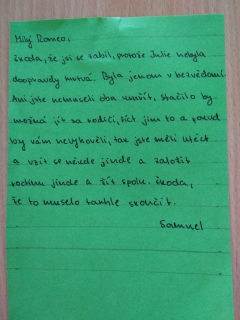 Milý Romeo,
škoda, že jsi se zabil, protože Julie nebyla
doopravdy mrtvá. Byla jenom v bezvědomí.
Ani jste nemuseli oba umřít, stačilo by
možná jít za rodiči, říct jim to a pokud
by vám nevyhověli, tak jste měli utéct
a vzít se někde jinde a založit
rodinu jinde a žít spolu. Škoda,
že to muselo takhle skončit.
Samuel